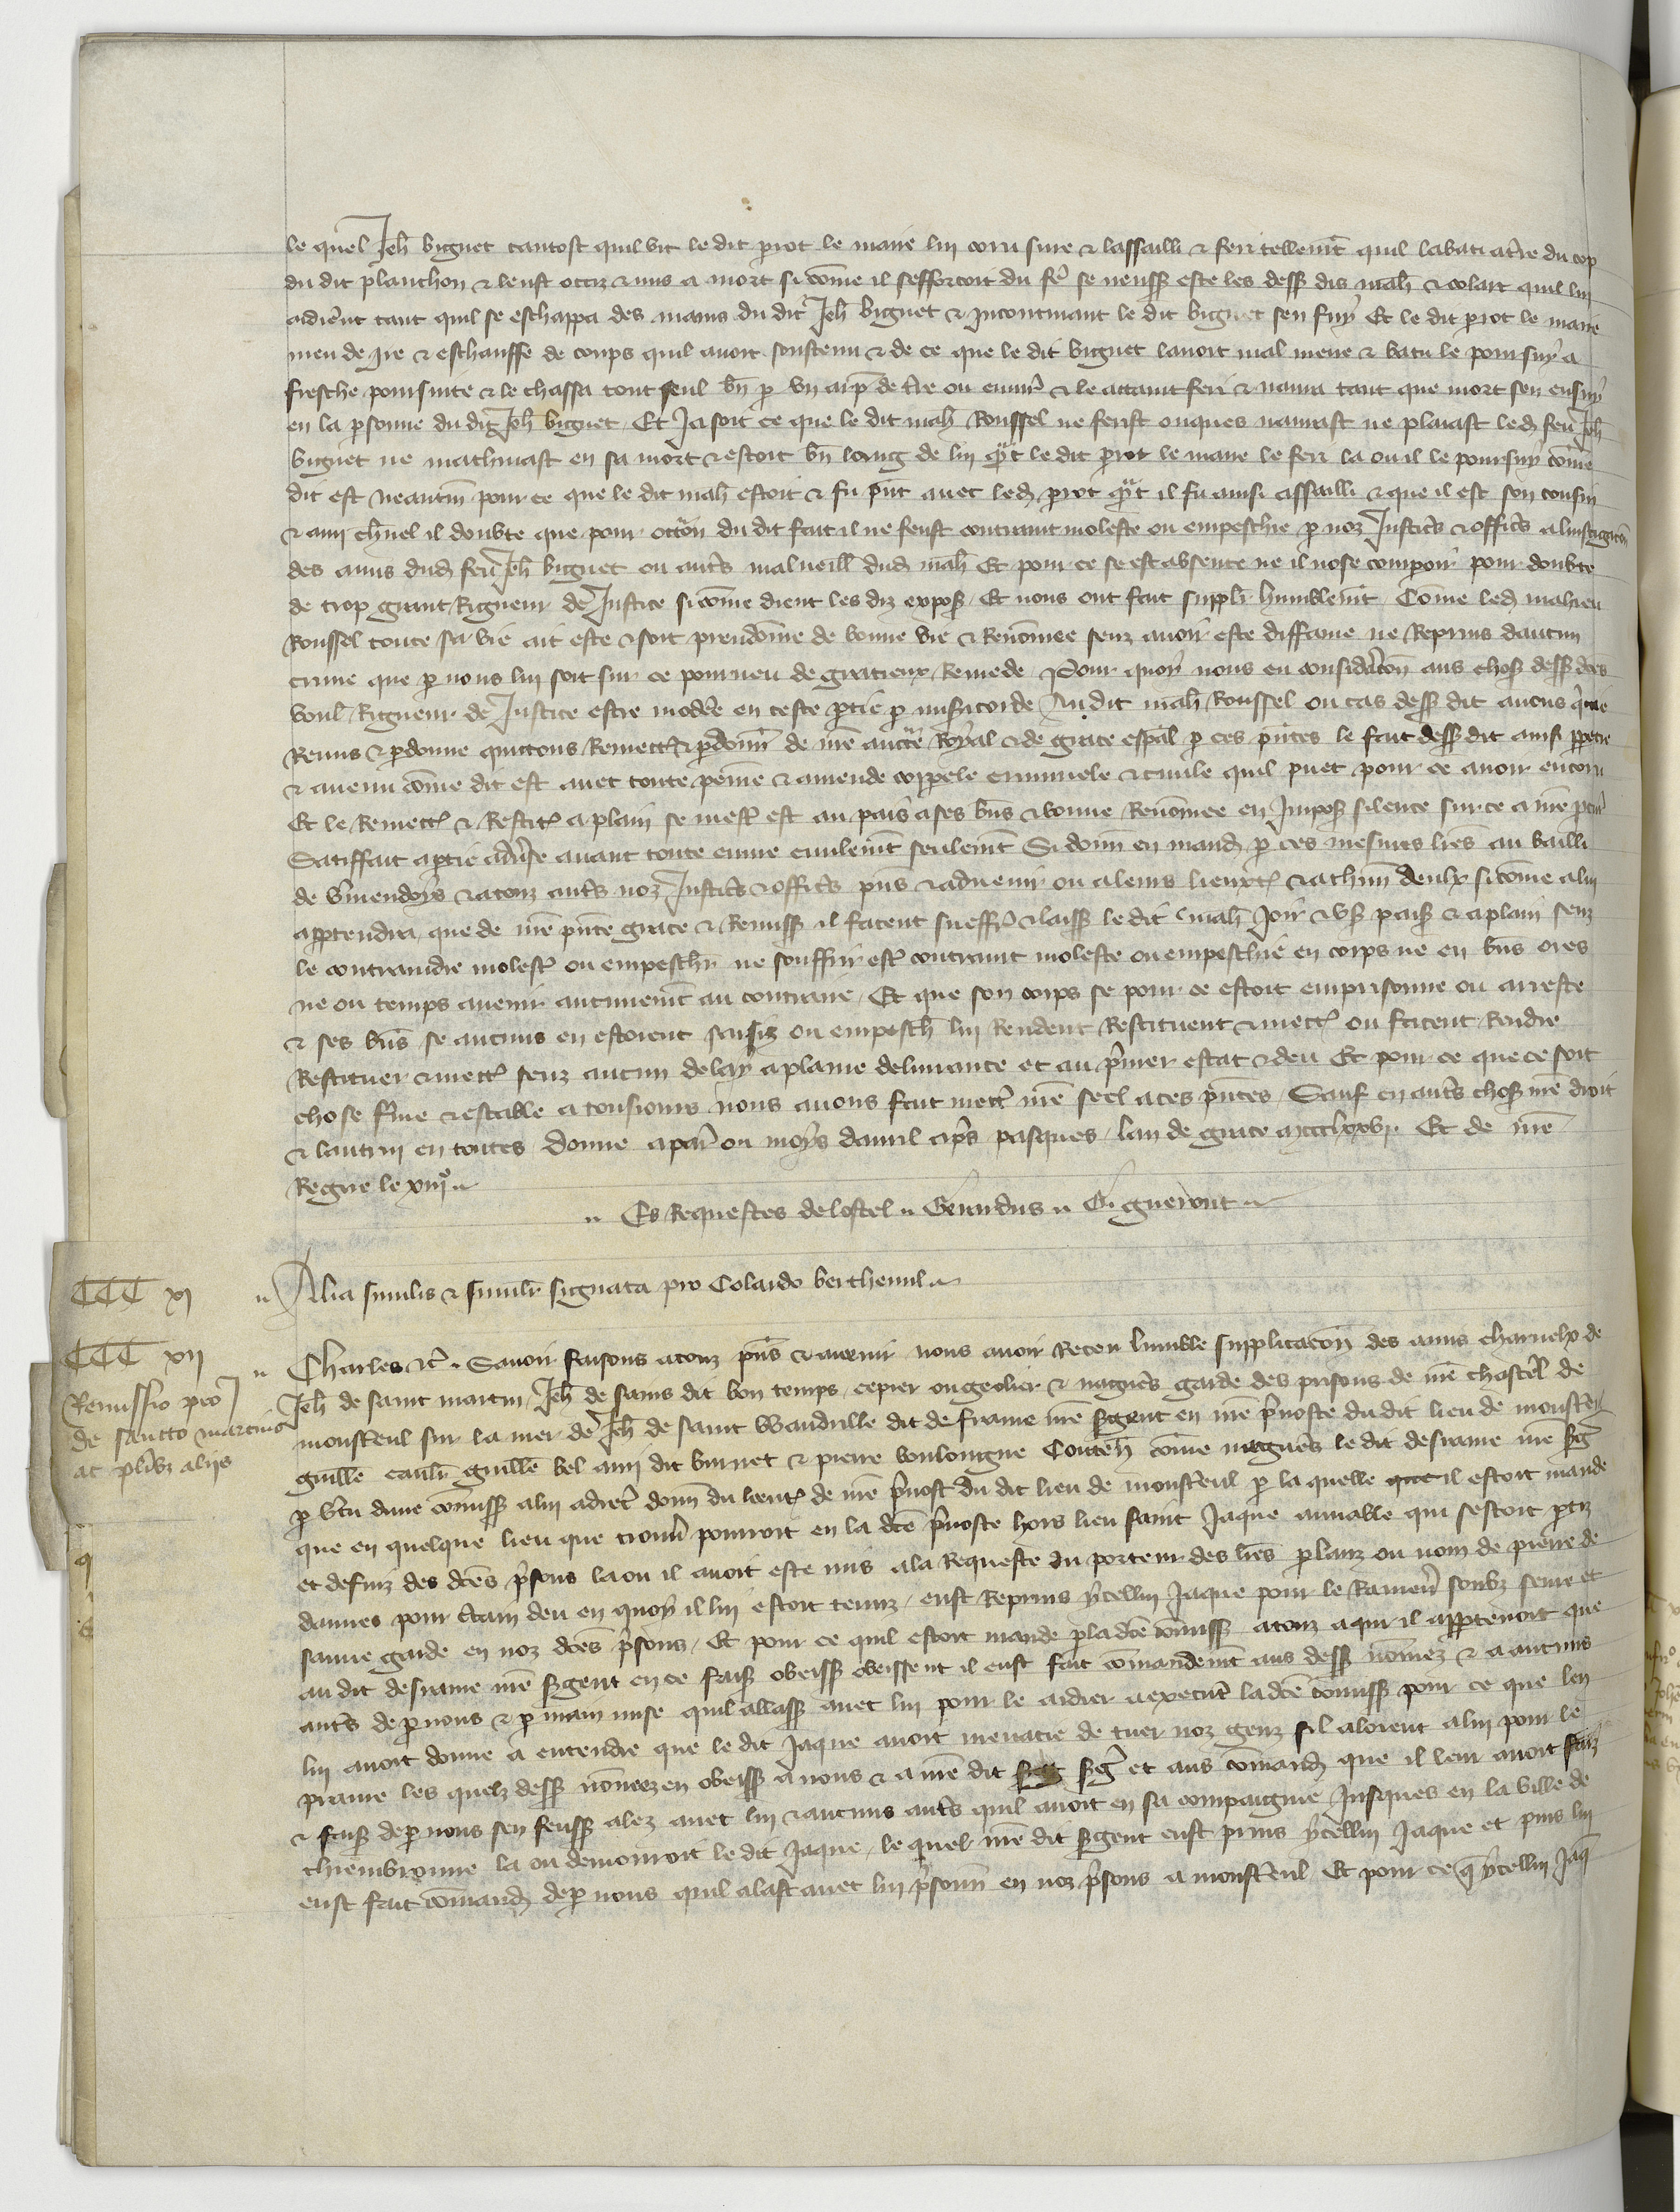 le quel Jeh biguet tantost quil vit le dit perot le maire lui couru sure & lassailli & feri tellemt quil labati a tre du cop
du dit planchon & leust occiz & mis a mort si come il sefforcoit du fe se neussent este les dess dis mah & colart quil lui
aidierent tant quil se eschappa des mains du dit Jeh biguet & incontinant le dit biguet sen fuy Et le dit perot le maire
meu de ire & eschauffe de coups quil avoit soustenu & de ce que le dit biguet lavoit mal mene & batu le poursuy a
fresche poursuite & le chassa tout seul bn p un arp de tre ou envir & le attaint feri & navra tant que mort sen ensuy
en la psonne du dit Jeh biguet Et Ja soit ce que le dit mah Roussel ne ferist onques navrast ne plaiast led feu Jeh
biguet ne machinast en sa mort & estoit bn loing de lui qnt le dit perot le maire le feri la ou il le poursuy come
dit est neantm pour ce que le dit mah estoit & fu pnt avec led perot qnt il fu ainsi assailli & que il est son cousin
& ami chnel il doubte que pour occon du dit fait il ne feust contraint moleste ou empeschie p noz Justices & offices a linstigacon
des amis dud feu Jeh biguet ou autres malueill dud mah Et pour ce se est absente ne il nose comparoir pour doubte
de trop grant Rigueur de Justice si come dient les diz expos Et nous ont fait suppli humblemt Come led mahieu
Roussel toute sa vie ait este & soit preudome de bonne vie & Renomee senz avoir este diffame ne Reprins daucun
crime que p nous lui soit sur ce pourveu de gracieux Remede Pour quoy nous en consideracon aus choses dess dces
voul Rigueur de Justice estre moderee en ceste ptie p misericorde Au dit mah Roussel ou cas dess dit avons quicte
Remis & pdonne quittons Remett & pdonn de nre aucte Royal & de grace espal p ces pntes le fait dess dit ainsi ppetre
& avenu come dit est avec toute peine & amende corporele criminele & civile quil puet pour ce avoir encoru
Et le Remett & Restit a plain se mest est au pais a ses bns & bonne Renomee en Impos silence sur ce a nre pcur
Satiffait a ptie adverse avant toute euvre civilemt seulemt Si donn en mand p ces mesmes lres au bailli
de Vermendoys & a touz autres noz Justices & offices pns & advenir ou a leurs lieuxt & a chun deulx si come a lui
appartendra que de nre pnte grace & Remiss il facent sueffr & laiss le dit mah Joir & us pais & a plain senz
le contraindre molest ou empescher ne souffrir est contraint moleste ou empeschie en corps ne en bns ores
ne ou temps avenir aucunemt au contraire Et que son corps se pour ce estoit emprisonne ou arreste
& ses bns se aucuns en estoient saisiz ou empesch lui Rendent Restituent & mett ou facent Rendre
Restituer & mett senz aucun delay a plaine delivrance et au premier estat & deu Et pour ce que ce soit
chose ferme & estable a tousiours nous avons fait mett nre seel a ces pntes Sauf en autres choses nre droit
& lautrui en toutes Donne a par ou moys davril apres pasques lan de grace mccclxxvi Et de nre
Regne le xiiio
Es Requestes de lostel Gerardus G. guerout
CCC xi Alia similis & simil signata pro Colardo berthemil
CCC xii Charles &c Savoir faisons a touz pns & avenir nous avoir Receu humble supplicacon des amis charnelx de
Remissio pro J Jeh de saint martin Jeh de sains dit bon temps cepier ou geolier & nagueres garde des prisons de nre chastel de
de sancto martino monsteul sur la mer de Jeh de saint wandrille dit desrame nre sergent en nre prevoste du dit lieu de monsteul
ac plibz aliis guille cauli guille bel ami dit burnet & pierre boulongne Conten come nagueres le dit desrame nre serg
p vertu dune comiss a lui adrec donn du lieut de nre prevost du dit lieu de monsteul p la quelle il estoit mande
que en quelque lieu que trouver pourroit en la dce prevoste hors lieu saint Jaque amiable qui sestoit ptiz
et defuiz des dces prisons la ou il avoit este mis a la Requeste du porteur des lres p lanz ou nom de pierre de
dannes pour ctain deu en quoy il lui estoit tenuz eust Reprins ycellui Jaque pour le Ramen soubz seure et
sauve garde en noz dces prisons Et pour ce quil estoit mande p la dce comiss a touz a qui il appartenoit que
au dit desrame nre sergent en ce fais obeiss obeissent il eust fait comandemt aus dess nomez & a aucuns
autres de p nous & p main mise quil allass avec lui pour le aidier a execut la dce comiss pour ce que len
lui avoit donne a entendre que le dit Jaque avoit menacie de tuer noz genz sil aloient a lui pour le
prane les quelz dess nomez en obeiss a nous & a nre dit serg et aus comand que il leur avoit faiz
& fais de p nous sen feuss alez avec lui & aucuns autres quil avoit en sa compaignie Jusques en la ville de
thiembronne la ou demouroit le dit Jaque le quel nre dit sergent eust prins ycellui Jaque et puis lui
eust fait comand de p nous quil alast avec lui prisonn en noz prisons a monsteul Et pour ce q ycellui Jaq